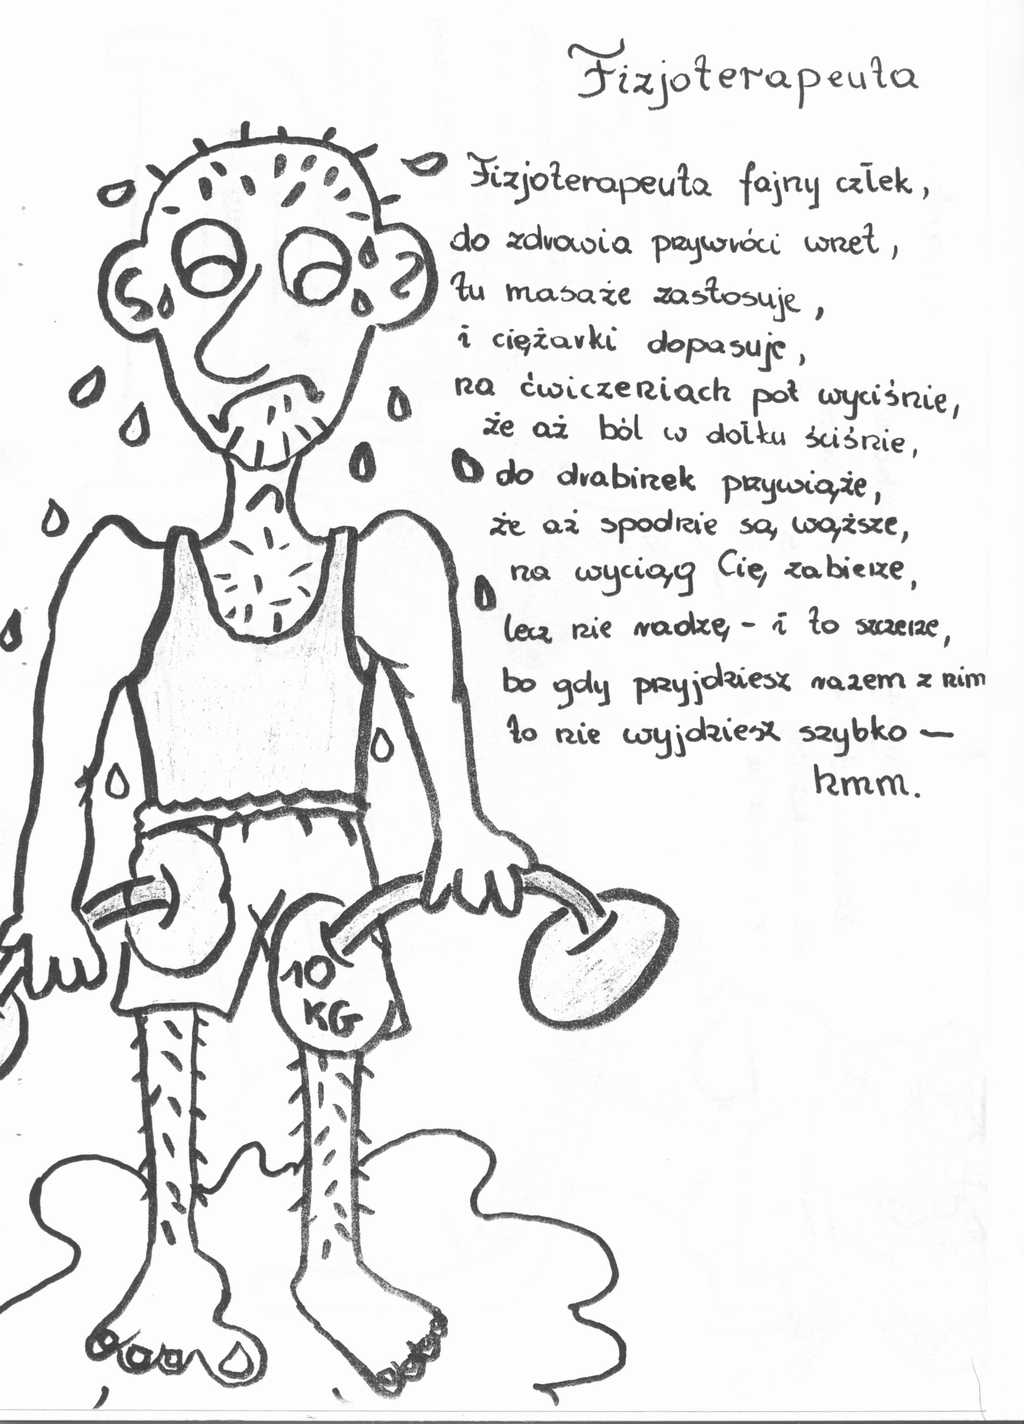 Fizjoterapeuta
Fizjoterapeuta fajny człek,
do zdrowia przywróci wnet,
tu masaże zastosuje,
i ciężarki dopasuje,
na ćwiczeniach pot wyciśnie,
że aż ból w dołku ściśnie,
do drabinek przywiąże,
że aż spodnie są węższe,
na wyciąg Cię zabierze,
lecz nie radzę - i to szczerze,
bo gdy przyjdziesz razem z nim
to nie wyjdziesz szybko —
hmm.
10
KG